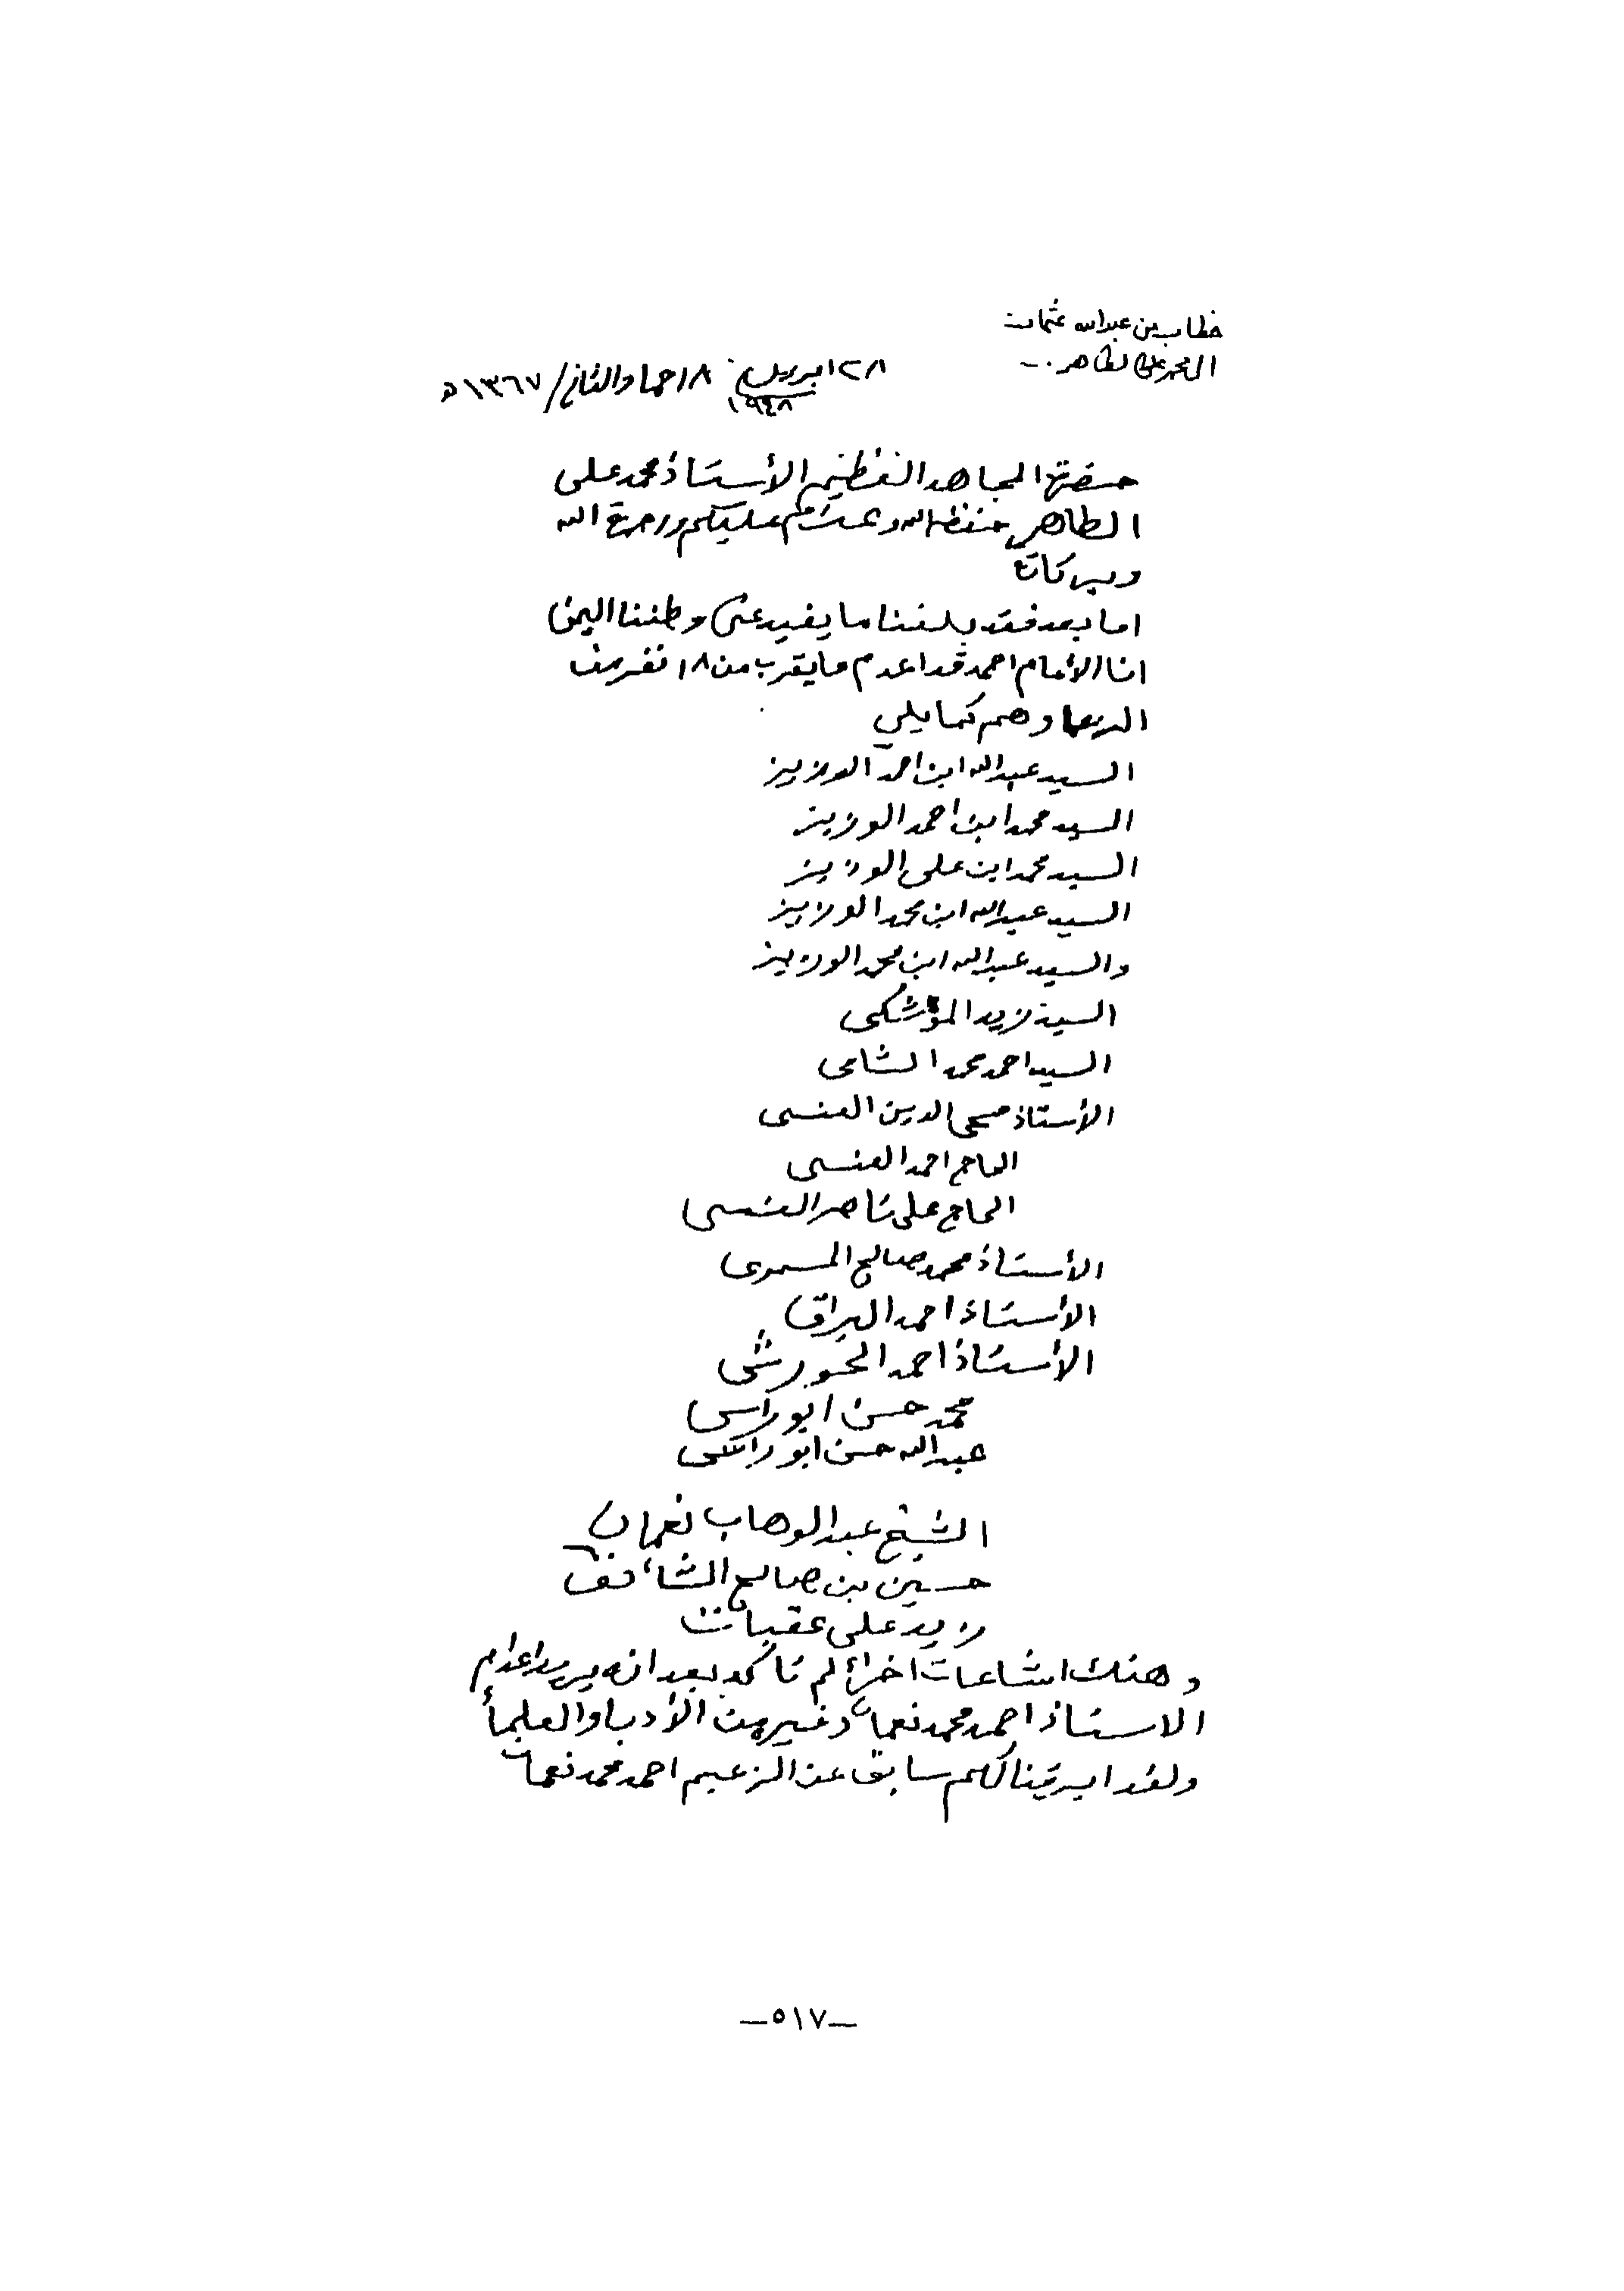 خطاب من عبدالله عثمان
الى محمد علي الطاهر . –
٢٨ ابريل ١٨ جماد الثاني / ١٣٦٧ ه
١٩٤٨
حضرة المجاهد العظيم الأستاذ محمد علي
الطاهر حفظه الله عليكم ورحمة الله
وبركاته
اما بعد فقد بلغنا ما يفيد عن وطننا اليمن
ان الأمام احمد قد اعدم ما يقرب من ١٨ نفر من
وهم كما يلي
السيد عبدالله ابن احمد الوزيز
السيد محمد ابن احمد الوزيز
السيد محمد ابن على الوزيز
السيد عبدالله ابن محمد الوزيز
والسيد عبدالله ابن محمد الوزيز
السيد زيد الموشكى
السيد احمد محمد الشامى
الأستاذ محى الدين العنسى
الحاج احمد العنسى
الحاج على ناصر العنسى
الأستاذ محمد صالح المسمرى
الأستاذ احمد البراق
الأستاذ احمد الحورشى
محمد حسن ابو راسى
عبدالله حسن ابو راسى
الشيخ عبد الوهاب نعمان
حسين بن صالح الشائف
زيد على عقبات
وهنك اشاعات اخرئ لم تأكد بعد انه يريد اعدام
الاستاذ احمد محمد نعمان وغيره من الأدبا والعلمأ
ولقد ابرقنا لكم سابق عن الزعيم احمد محمد نعمان
–٥١٧–